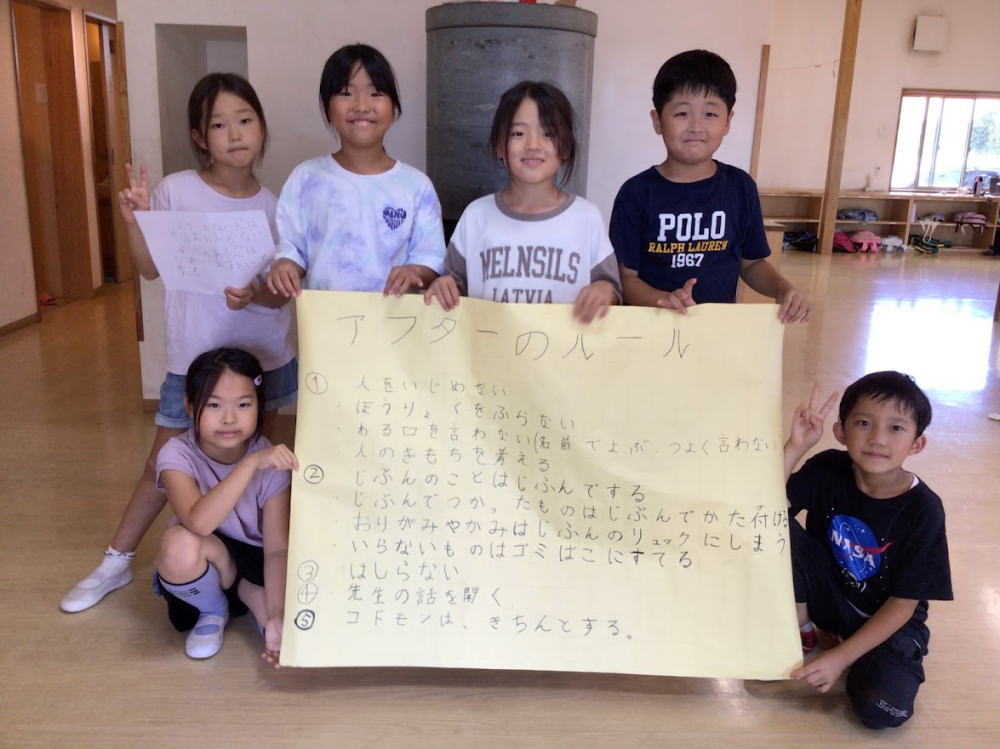 アフターのルール
① 人をいじめない
・ぼうりょくをふらない
・わる口を言わない(名前でよぶ、つよく言わない
・人のきもちを考える
② じぶんのことはじふんでする
・じぶんでつかったものはじぶんでかた付ける
・おりがみやかみはじふんのリュックにしまう
・いらないものはゴミばこにすてる
③ はしらない
④ 先生の話を聞く
⑤ コドモンは、きちんとする。
MELNSILS
LATVIA
POLO
RALPH LAUREN
1967
NASA